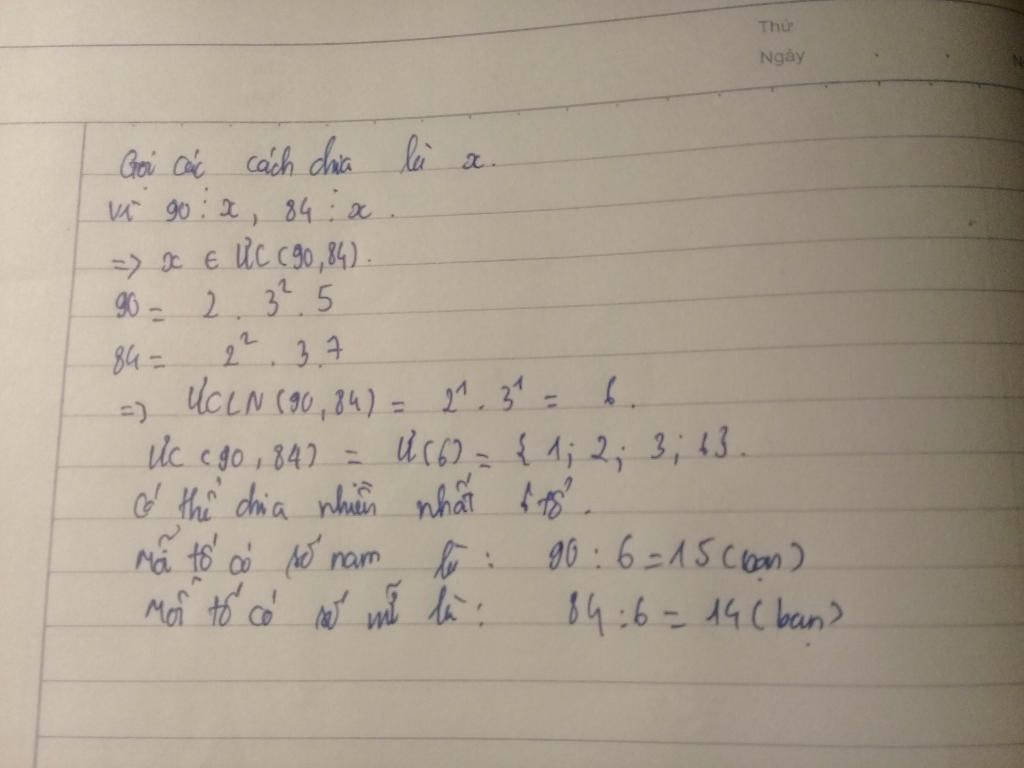 Thứ
Ngày
Gọi các cách chia là x.
Vì 90 ⋮ x, 84 ⋮ x.
=> x ∈ ƯC(90,84).
90 = 2 . 3² . 5
84 = 2² . 3 . 7
=> ƯCLN(90,84) = 2¹ . 3¹ = 6.
ƯC(90,84) = Ư(6) = {1; 2; 3; 6}.
Có thể chia nhiều nhất 6 tổ.
Mỗi tổ có số nam là: 90 : 6 = 15 (bạn)
Mỗi tổ có số nữ là: 84 : 6 = 14 (bạn)